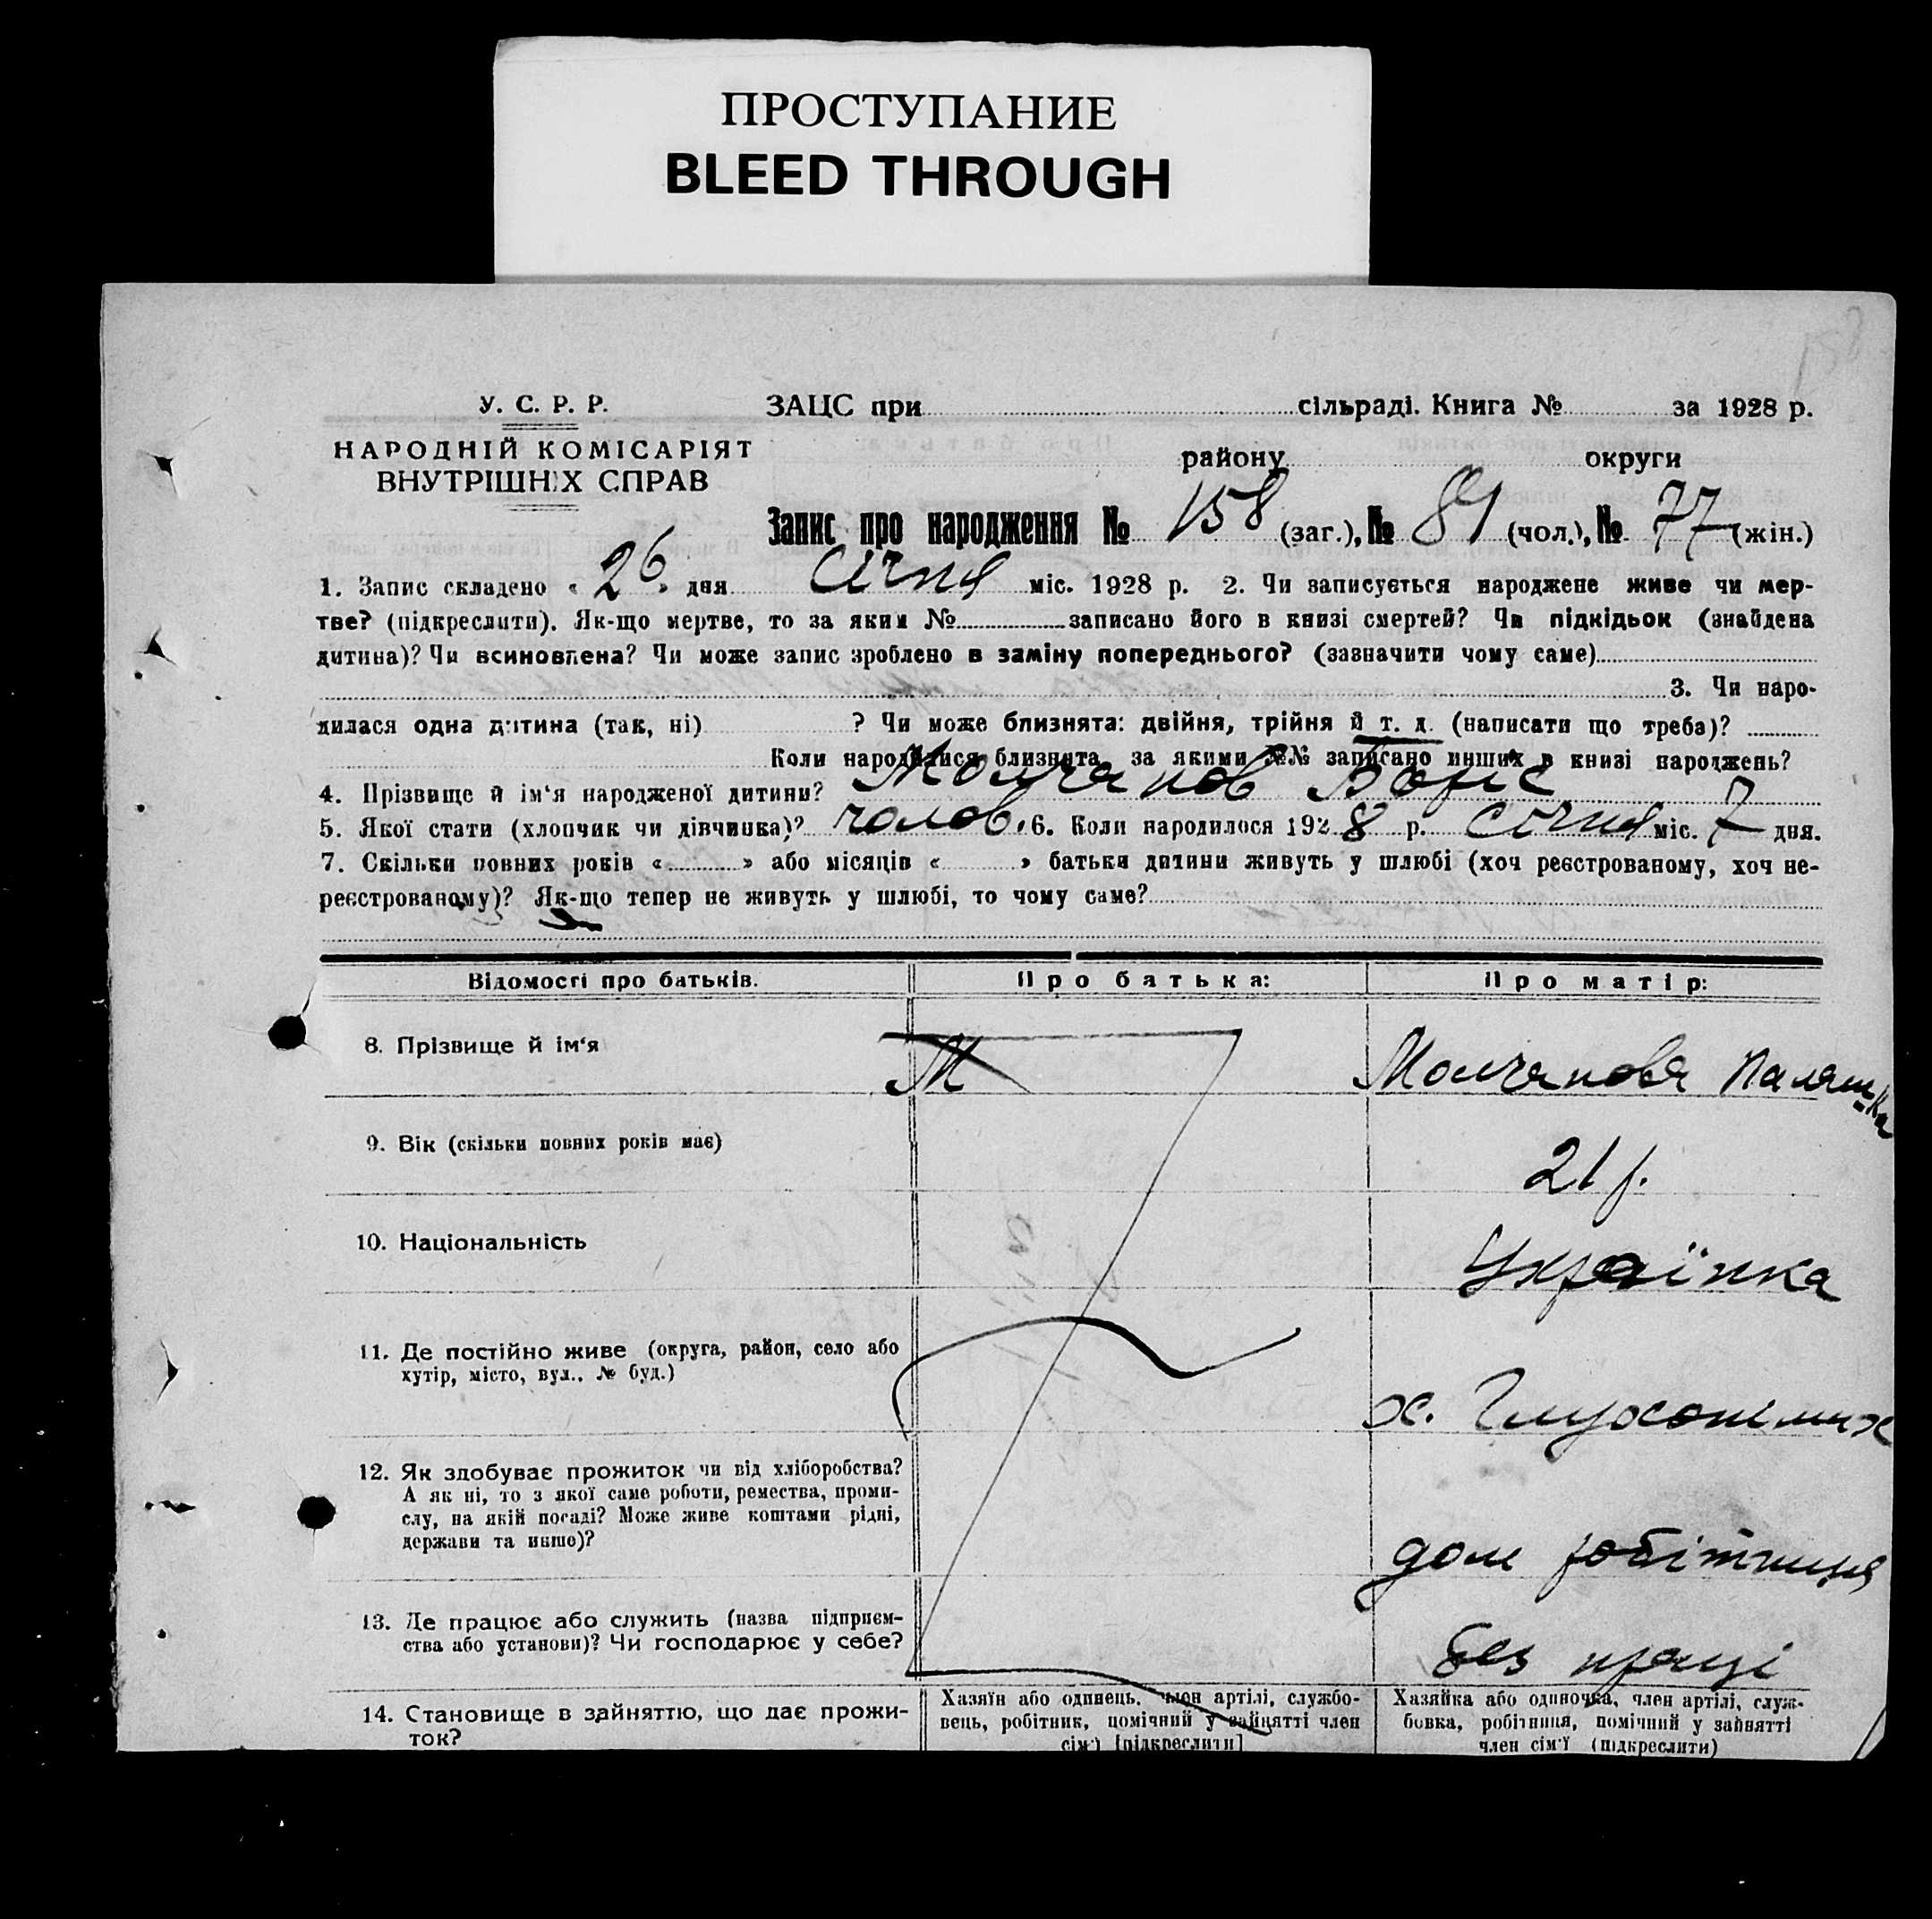 ПРОСТУПАНИЕ
BLEED THROUGH
158
У. С. Р. Р.
НАРОДНІЙ КОМІСАРІЯТ
ВНУТРІШНІХ СПРАВ
ЗАЦС при сільраді. Книга № за 1928 р.
району округи
Запис про народження № 158 (заг.), № 81 (чол.), № 77 (жін.)
1. Запис складено « 26 » дня січня міс. 1928 р. 2. Чи записується народжене живе чи мер-
тве? (підкреслити). Як-що мертве, то за яким № записано його в книзі смертей? Чи підкідьок (знайдена
дитина)? Чи всиновлена? Чи може запис зроблено в заміну попереднього? (зазначити чому саме)
3. Чи наро-
дилася одна дитина (так, ні) ? Чи може близнята: двійня, трійня й т. д. (написати що треба)?
Коли народилися близнята, за якими №№ записано инших в книзі народжень?
4. Прізвище й ім‘я народженої дитини? Молчанов Боріс
5. Якої стати (хлопчик чи дівчинка)? чолов. 6. Коли народилося 1928 р. січня міс. 7 дня.
7. Скільки повних років « » або місяців « » батьки дитини живуть у шлюбі (хоч реєстрованому, хоч не-
реєстрованому)? Як-що тепер не живуть у шлюбі, то чому саме?
Відомості про батьків. Про батька: Про матір:
8. Прізвище й ім‘я М Молчанова Палашка
9. Вік (скільки повних років має) 21 р.
10. Національність Українка
11. Де постійно живе (округа, район, село або
хутір, місто, вул., № буд.) х. Глухонімих
12. Як здобуває прожиток чи від хліборобства?
А як ні, то з якої саме роботи, ремества, проми-
слу, на якій посаді? Може живе коштами рідні,
держави та инше)? дом робітниця
13. Де працює або служить (назва підприєм-
ства або установи)? Чи господарює у себе? без праці
14. Становище в зайняттю, що дає прожи-
ток?
Хазяїн або одинець, член артілі, службо-
вець, робітник, помічний у зайнятті член
сім‘ї [підкреслити]
Хазяйка або одиночка, член артілі, служ-
бовка, робітниця, помічний у зайнятті
член сім‘ї (підкреслити)